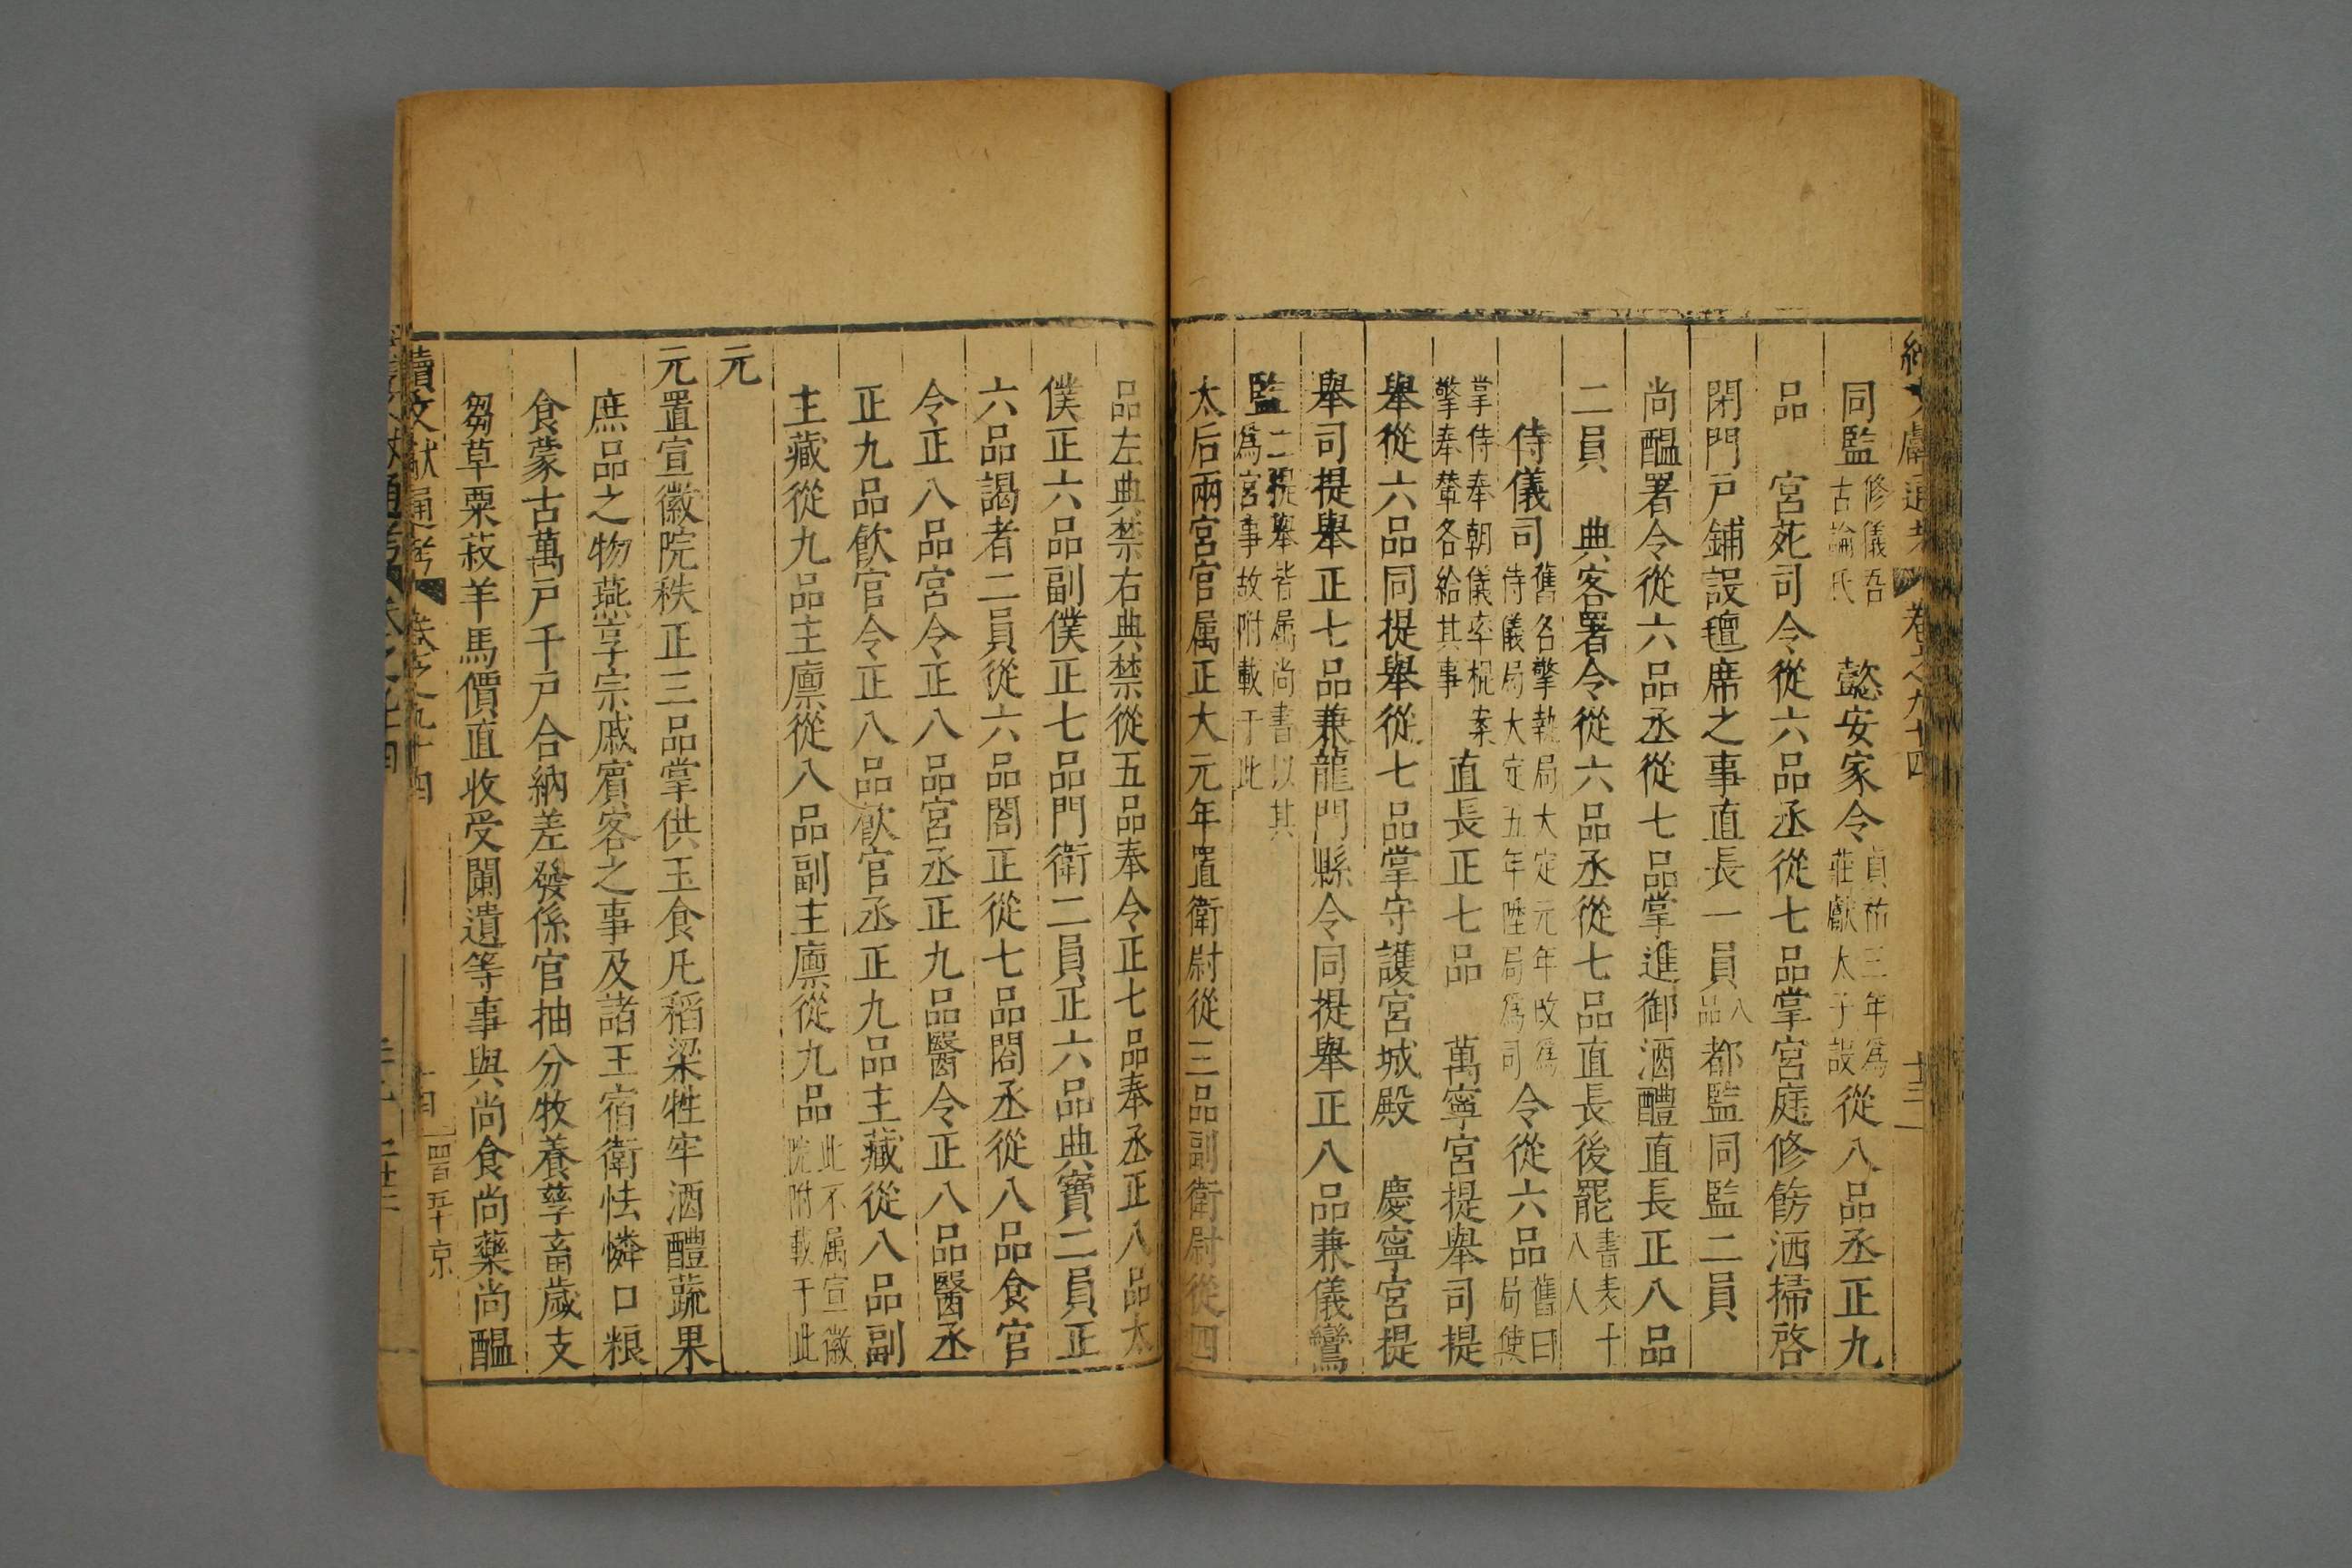 同監修儀吾古論氏 懿安家令貞祐三年爲莊獻太子設從八品丞正九
品 宮苑司令從六品丞從七品掌宮庭修飭洒掃啓
閉門戸鋪設氊席之事直長一員八品都監同監二員
尚醞署令從六品丞從七品掌進御酒醴直長正八品
二員 典客署令從六品丞從七品直長後罷書表十八人
侍儀司舊名擎執局大定元年改爲侍儀局大定五年陞局爲司令從六品舊曰局使
掌侍奉朝儀率捉案擎奉輦各給其事 直長正七品 萬寧宮提舉司提
舉從六品同提舉從七品掌守護宮城殿 慶寧宮提
舉司提舉正七品兼龍門縣令同提舉正八品兼儀鸞
監二提舉皆属尚書以其爲宮事故附載于此
太后兩宮官属正大元年置衛尉從三品副衛尉從四
品左典禁右典禁從五品奉令正七品奉丞正八品太
僕正六品副僕正七品門衛二員正六品典寶二員正
六品謁者二員從六品閤正從七品閤丞從八品食官
令正八品宮令正八品宮丞正九品醫令正八品醫丞
正九品飲官令正八品飲官丞正九品主藏從八品副
主藏從九品主廩從八品副主廩從九品此不属宣徽院附載于此
元
元置宣徽院秩正三品掌供玉食凡稻梁牲牢酒醴蔬果
庶品之物燕享宗戚賓客之事及諸王宿衛怯憐口粮
食蒙古萬戸千戸合納差發係官抽分牧養孳畜歲支
芻草粟菽羊馬價直收受闌遺等事與尚食尚藥尚醞
續文獻通考 卷之九十四
四百五十 京